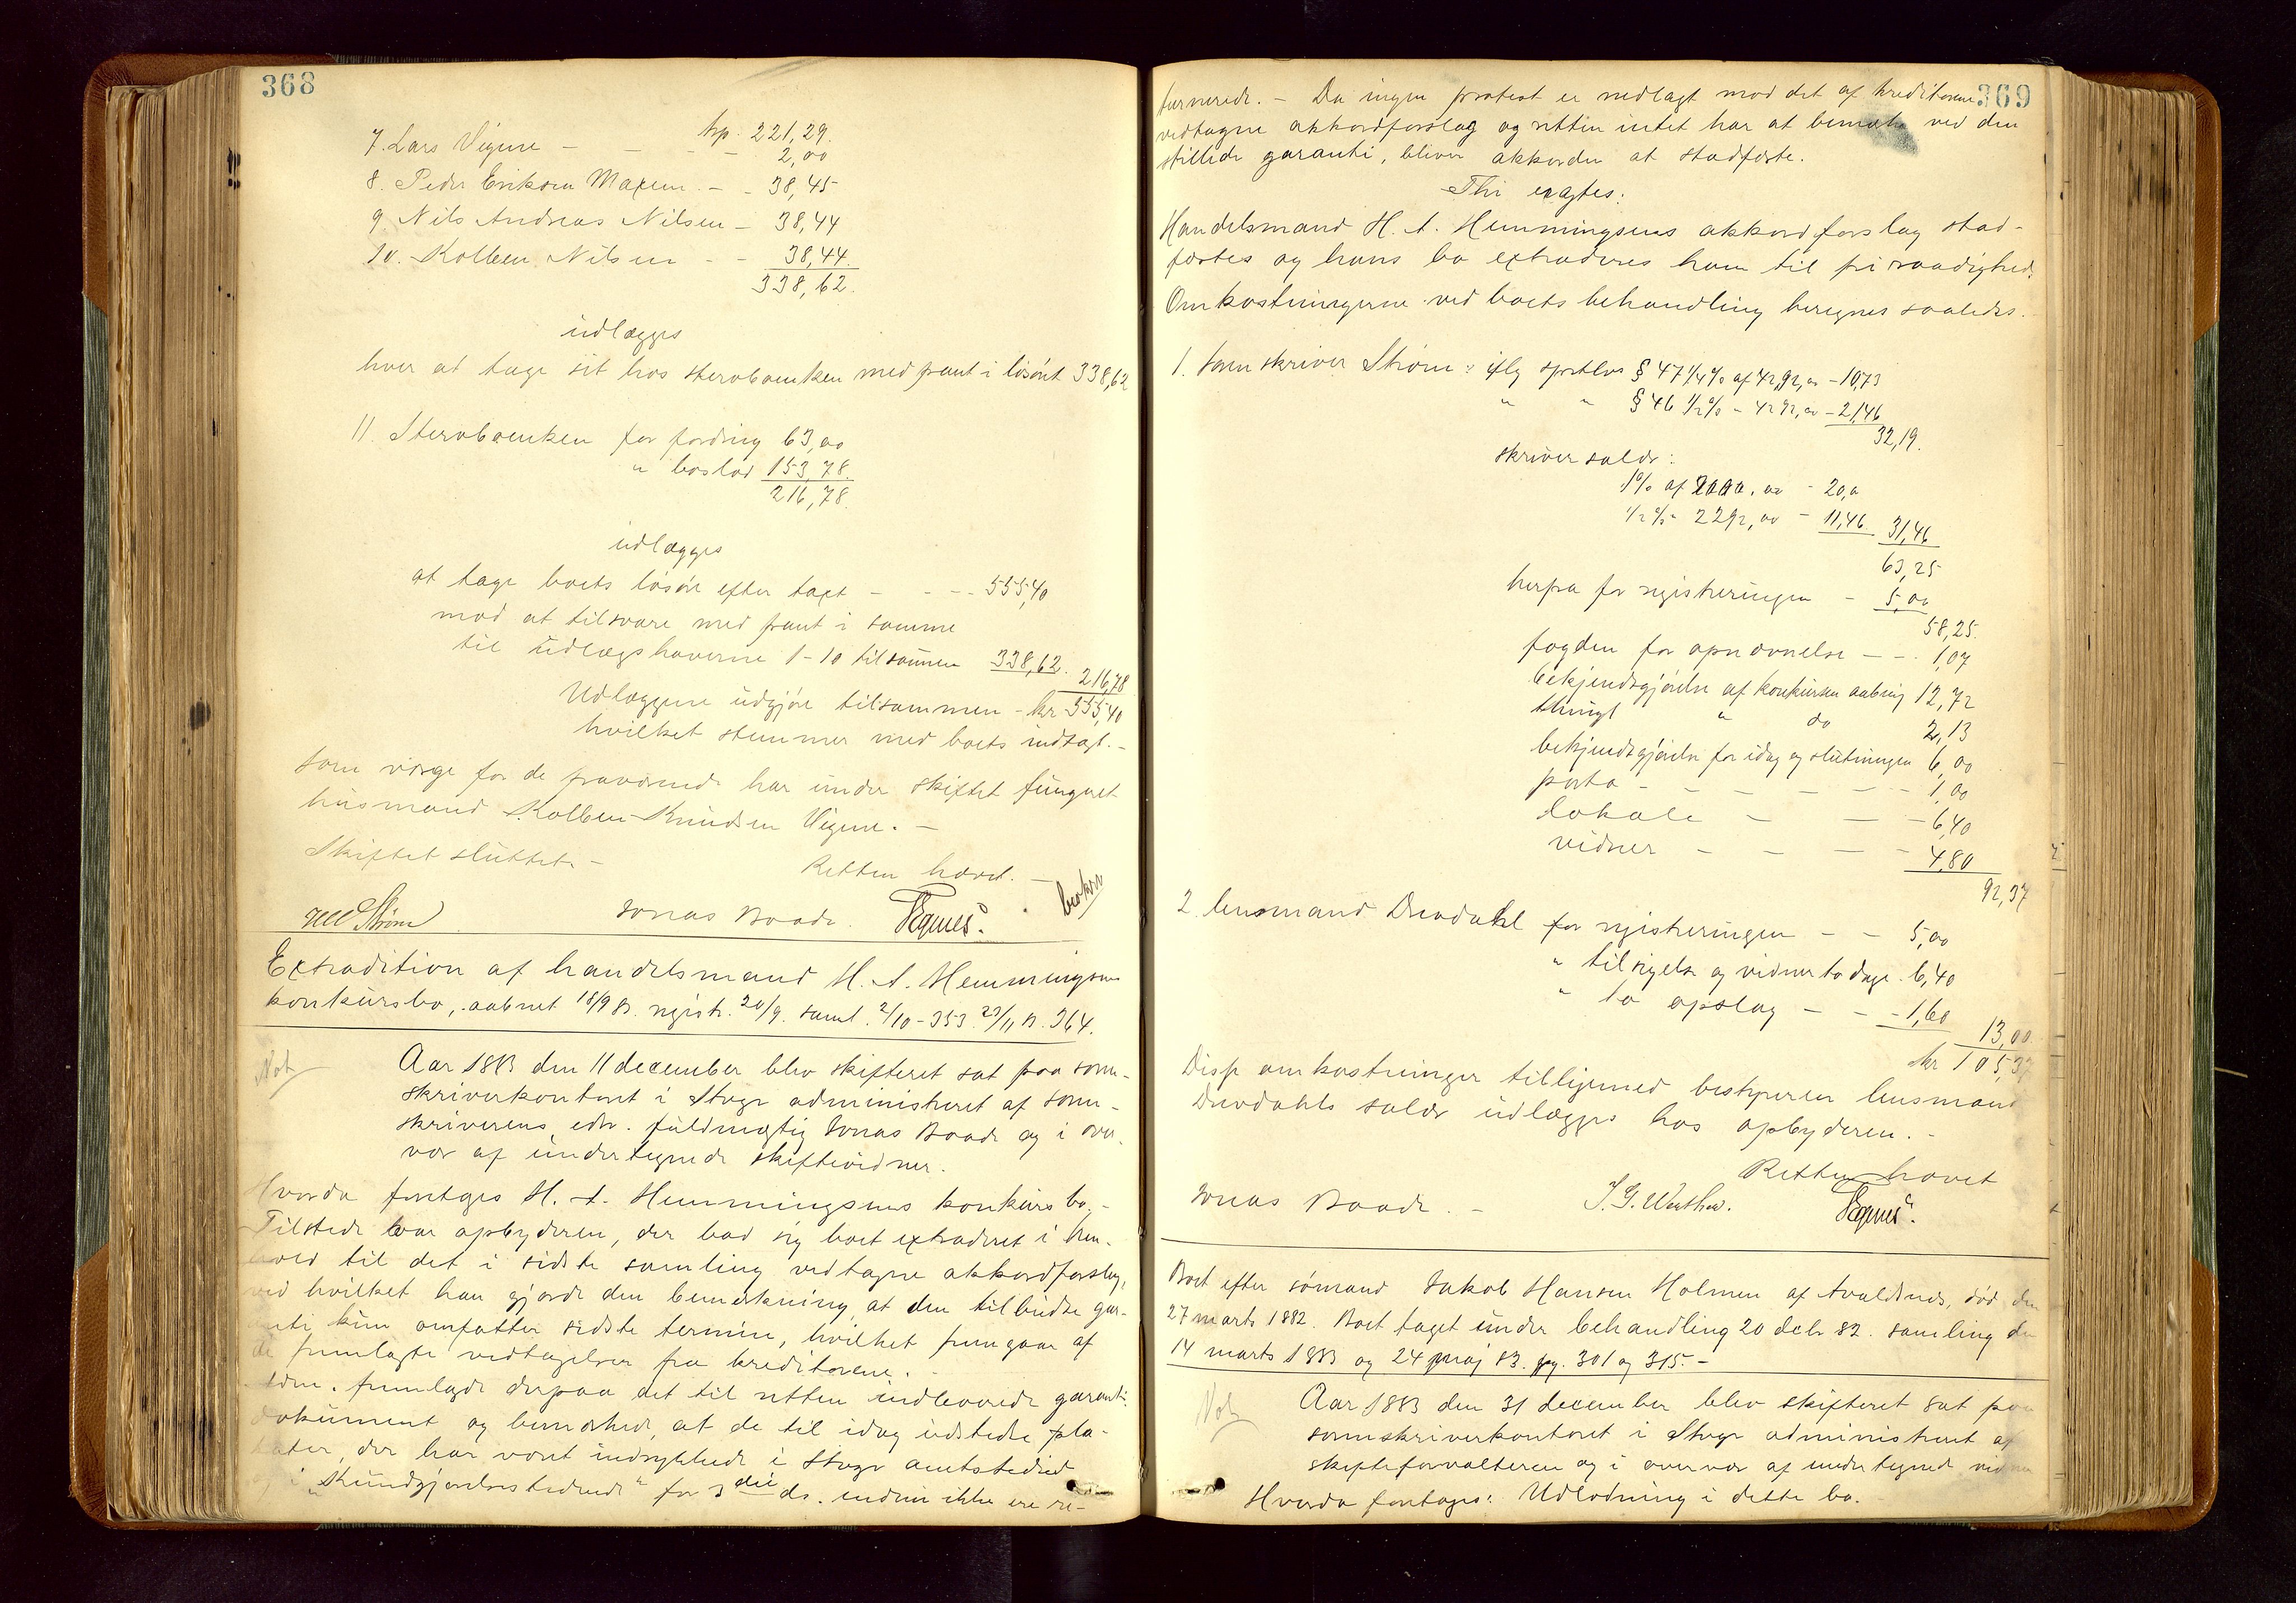 368
trp. 221,29.
7. Lars Vigene - - - - 2,00
8. Peder Eriksen Maxem. - - 38,45
9. Nils Andreas Nilsen - 38,44
10. Kolben Nilsen - - 38,44.
338,62.
udlægges
hver at tage sit hos stervboenken med pant i løsøret 338,62
11. Stervboenken for fordring 63,00
" boslod 153,78.
216,78.
udlægges
at tage boets løsøre efter taxt - - - - 555,40
mod at tilsvare med pant i samme
til udlægshaverne 1-10 tilsammen 338,62.
216,78
Udlæggene udgjøre tilsammen - kr 555,40
hvilket stemmer med boets indtægt. -
Som værge for de fraværende har under skiftet fungeret
husmand Kolben Knudsen Vigene. -
Skiftet sluttet. -
Retten hævet. -
Strøm
Jonas Boade.
Extradition af handelsmand H. A. Hemmingsens
konkursbo, aabnet 18/9 83. registr. 20/9. saml. 2/10 - 353. 23/11 s. 364.
Not
Aar 1883 den 11 december blev skifteret sat paa soren-
skriverkontoret i Stege administreret af soren-
skriverens edsv. fuldmægtig Jonas Boade og i over-
vær af undertegnede skiftevidner.
Hvorda foretoges H. A. Hemmingsens konkursbo. -
Tilstede var opbyderen, der bad sig boet extraderet i hen-
hold til det i sidste samling vedtagne akkordforslag,
ved hvilket han gjorde den bemærkning, at den tilbudte gar-
anti kun omfatter sidste termin, hvilket fremgaar af
de fremlagte vedtagelser fra kreditorene. -
Adm. fremlagde derpaa det til retten indleverede garanti-
dokument og bemærkede, at de til idag udstedte pla-
kater, der har været indrykkede i Stegr amtstidend
og i "Kundgjørelsestidende" for 3die ds. endnu ikke ere re-
369
turnerede. - Da ingen protest er nedlagt mod det af kreditorene
vedtagne akkordforslag og retten intet har at bemærke ved den
stillede garanti, bliver akkorden at stadfæste.
Thi eragtes:
Handelsmand H. A. Hemmingsens akkordforslag stad-
fæstes og hans bo extraderes ham til fri raadighed.
Omkostningerne ved boets behandling beregnes saaledes.
1. Sorenskriver Strøm: iflg sprtlov § 47 1/4% af 4292,00 - 10,73
" " § 46 1/2% - 4292,00 - 21,46
32,19.
skriversalær:
1% af 2000,00 - 20,0
1/2% - 2292,00 - 11,46 31,46
63,25
herfra for registreringen - 5,00
58,25.
fogden for opnævnelse - - . 1,07
bekjendtgjørelse af konkursens aabning 12,72
thingl " do 2,13
bekjendtgjørelse for idag og slutningen 6,00
porto - - - - - - 1,00
Lokale - - - 6,40
vidner - - - - 4,80
92,37
2. lensmand Devdahl for registreringen - - 5,00
" tilsigelse og vidner to dage. 6,40
" to opslag - - - 1,60
13,00.
kr 105,37
Disse omkostninger tilligemed bestyreren lensmand
Devdahls salær udlægges hos opbyderen. -
Retten hævet
Jonas Boade. -
Boet efter sømand Jakob Hansen Holmen af Avaldsnes, død den
27 marts 1882. Boet taget under behandling 20 decb 82. samling den
14 marts 1883 og 24 maj 83. pg. 301 og 315. -
Not
Aar 1883 den 31 december blev skifteret sat paa
sorenskriverkontoret i Stege administreret af
skifteforvalteren og i overvær af undertegned vidner
Hvorda foretoges: Udlodning i dette bo.